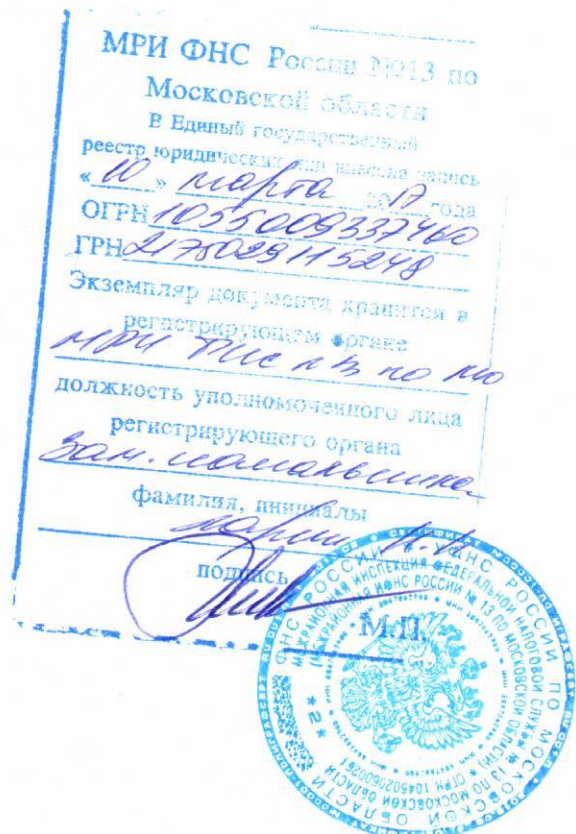 МРИ ФНС России №13 по
Московской области
В Единый государственный
реестр юридических лиц внесена запись
« 10 » марта 2017 года
ОГРН 1055009337460
ГРН 2175029115248
Экземпляр документа хранится в
регистрирующем органе
МРИ ФНС №13 по МО
должность уполномоченного лица
регистрирующего органа
Зам. начальника
фамилия, инициалы
подпись
М.П.
ФНС РОССИИ * УФНС РОССИИ ПО МОСКОВСКОЙ ОБЛАСТИ
МЕЖРАЙОННАЯ ИНСПЕКЦИЯ ФЕДЕРАЛЬНОЙ НАЛОГОВОЙ СЛУЖБЫ № 13 ПО МОСКОВСКОЙ ОБЛАСТИ
(МЕЖРАЙОННАЯ ИФНС РОССИИ № 13 ПО МОСКОВСКОЙ ОБЛАСТИ)
ОГРН 1045020600261
* 2 *